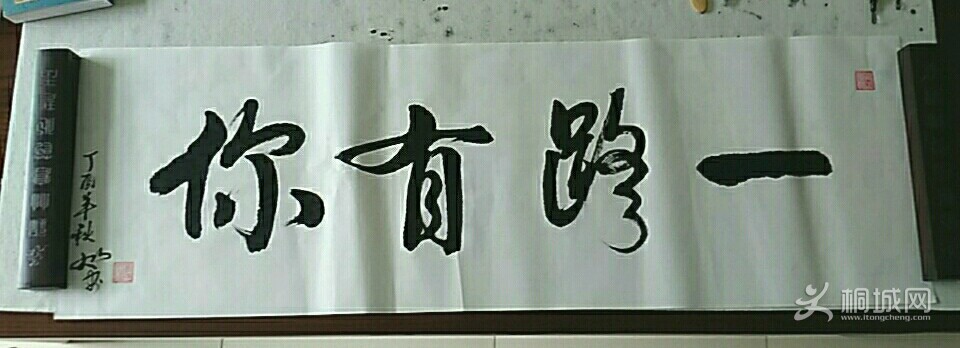 一路有你
丁酉年秋
桐城网
www.itongcheng.com